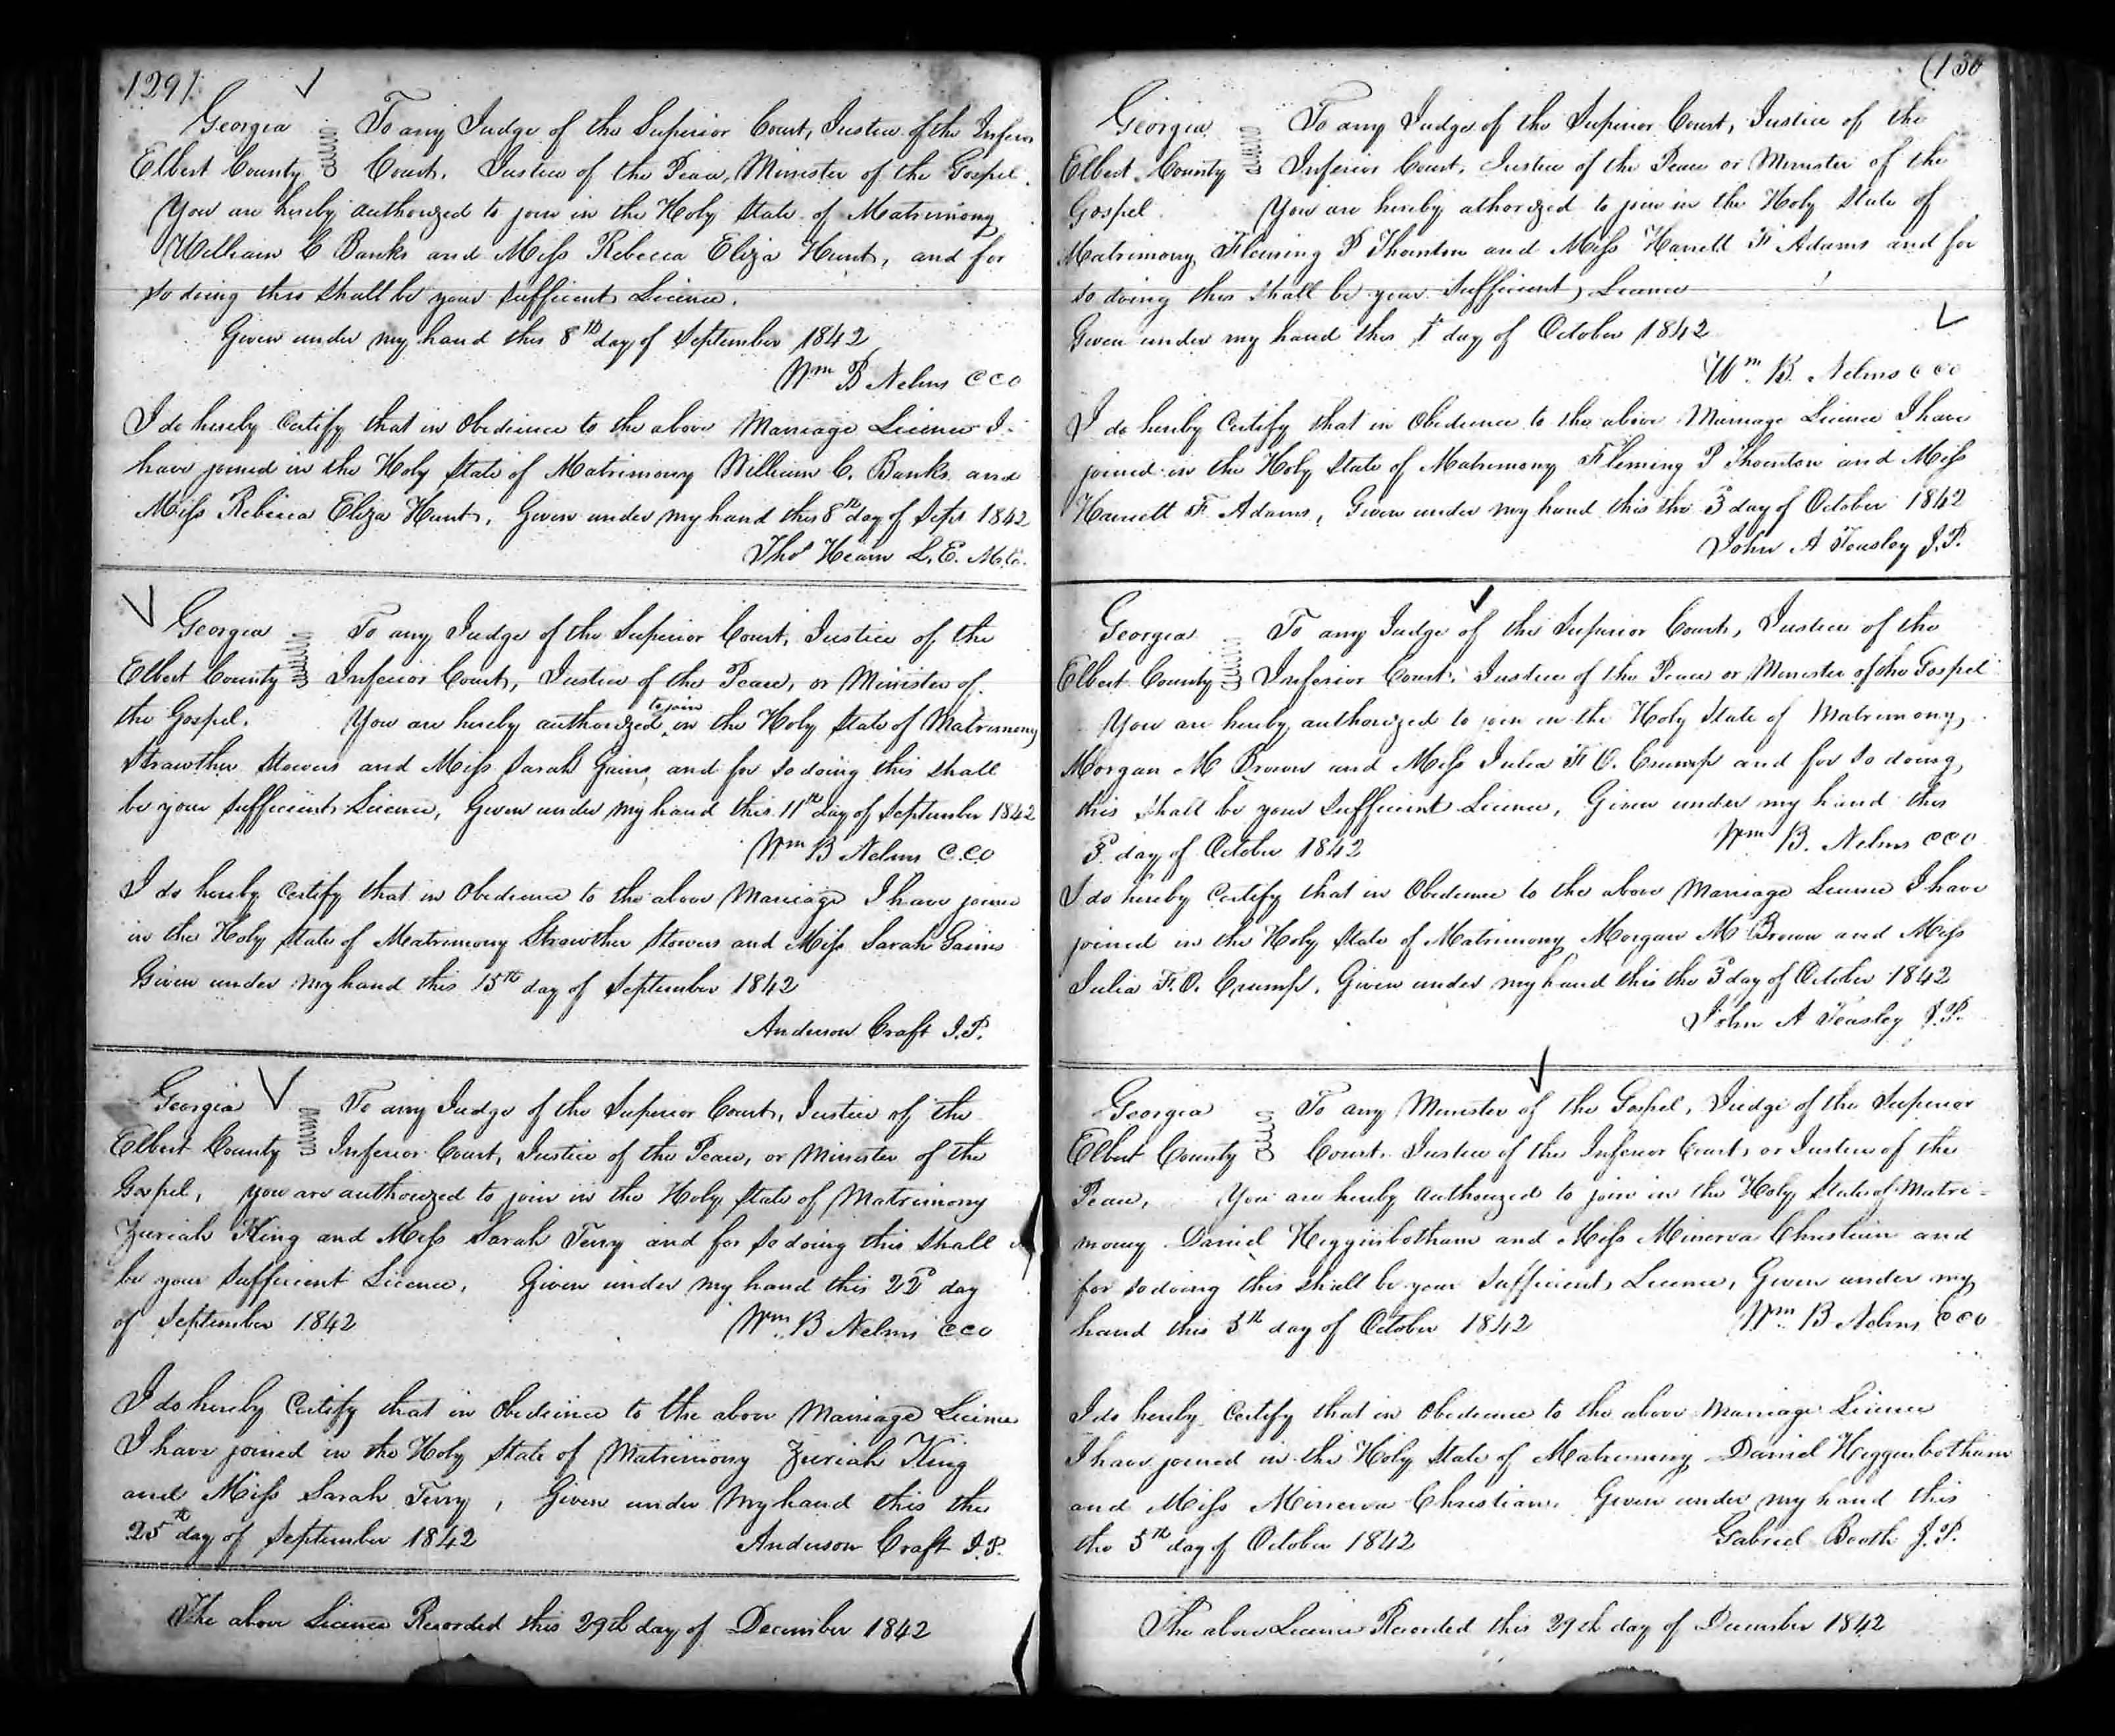 129).
Georgia To any Judge of the Superior Court, Justice of the Inferior
Elbert County Court, Justice of the Peace, Minister of the Gospel.
You are hereby authorized to join in the Holy State of Matrimony
William C Banks and Miss Rebecca Eliza Hunt, and for
so doing this shall be your sufficient Licence.
Given under my hand this 8th day of September 1842
Wm B Nelms CCO
I do hereby Certify that in Obedience to the above Marriage Licence I
have joined in the Holy State of Matrimony William C. Banks and
Miss Rebecca Eliza Hunt, Given under my hand this 8th day of Sept 1842
Thos Hearn L.E.
Georgia To any Judge of the Superior Court, Justice of the
Elbert County Inferior Court, Justice of the Peace, or Minister of
the Gospel. You are hereby authorized to join in the Holy State of Matrimony
Strawther Stowers and Miss Sarah Gains, and for so doing this shall
be your sufficient Licence, Given under my hand this 11th day of September 1842
Wm B Nelms C.C.O
I do hereby Certify that in Obedience to the above Marriage I have joined
in the Holy State of Matrimony Strowther Stowers and Miss Sarah Gaines
Given under my hand this 15th day of September 1842
Anderson Craft J.P.
Georgia To any Judge of the Superior Court, Justice of the
Elbert County Inferior Court, Justice of the Peace, or Minister of the
Gospel, you are authorized to join in the Holy State of Matrimony
Zuriah King and Miss Sarah Terry and for so doing this shall
be your sufficient Licence, Given under my hand this 22d day
of September 1842 Wm. B Nelms CCO
I do hereby Certify that in Obedience to the above Marriage Licence
I have joined in the Holy State of Matrimony Zuriah King
and Miss Sarah Terry, Given under my hand this the
25th day of September 1842 Anderson Craft J.P.
The above Licence Recorded this 29th day of December 1842
(130
Georgia To any Judge of the Superior Court, Justice of the
Elbert County Inferior Court, Justice of the Peace or Minister of the
Gospel. You are hereby athorized to join in the Holy State of
Matrimony Fleming P Thornton and Miss Harrett F Adams and for
so doing this shall be your sufficient Licence
Given under my hand this 1st day of October 1842
Wm. B. Nelms CCO
I do hereby Certify that in Obedience to the above Marriage Licence I have
joined in the Holy State of Matrimony Fleming P Thornton and Miss
Harriett F Adams, Given under my hand this the 3d day of October 1842
John A Teasley J.P.
Georgia To any Judge of the Superior Court, Justice of the
Elbert County Inferior Court, Justice of the Peace or Minister of the Gospel
You are hereby authorized to join in the Holy State of Matrimony,
Morgan M Brown and Miss Julia F. O. Crump and for so doing,
this shall be your sufficient Licence, Given under my hand this
3d day of October 1842 Wm B. Nelms CCO
I do hereby Certify that in Obedience to the above Marriage Licence I have
joined in the Holy State of Matrimony Morgan M Brown and Miss
Julia F. O. Crump, Given under my hand this the 3d day of October 1842
John A Teasley J.P.
Georgia To any Minister of the Gospel, Judge of the Superior
Elbert County Court, Justice of the Inferior Court, or Justice of the
Peace, You are hereby authorized to join in the Holy State of Matri=
mony Daniel Higginbotham and Miss Minerva Christian and
for so doing this shall be your sufficient Licence, Given under my
hand this 5th day of October 1842 Wm. B Nelms CCO
I do hereby Certify that in Obedience to the above Marriage Licence
I have joined in the Holy State of Matrimony Daniel Higginbotham
and Miss Minerva Christian. Given under my hand this
the 5th day of October 1842 Gabriel Booth J.P.
The above Licence Recorded this 29th day of December 1842